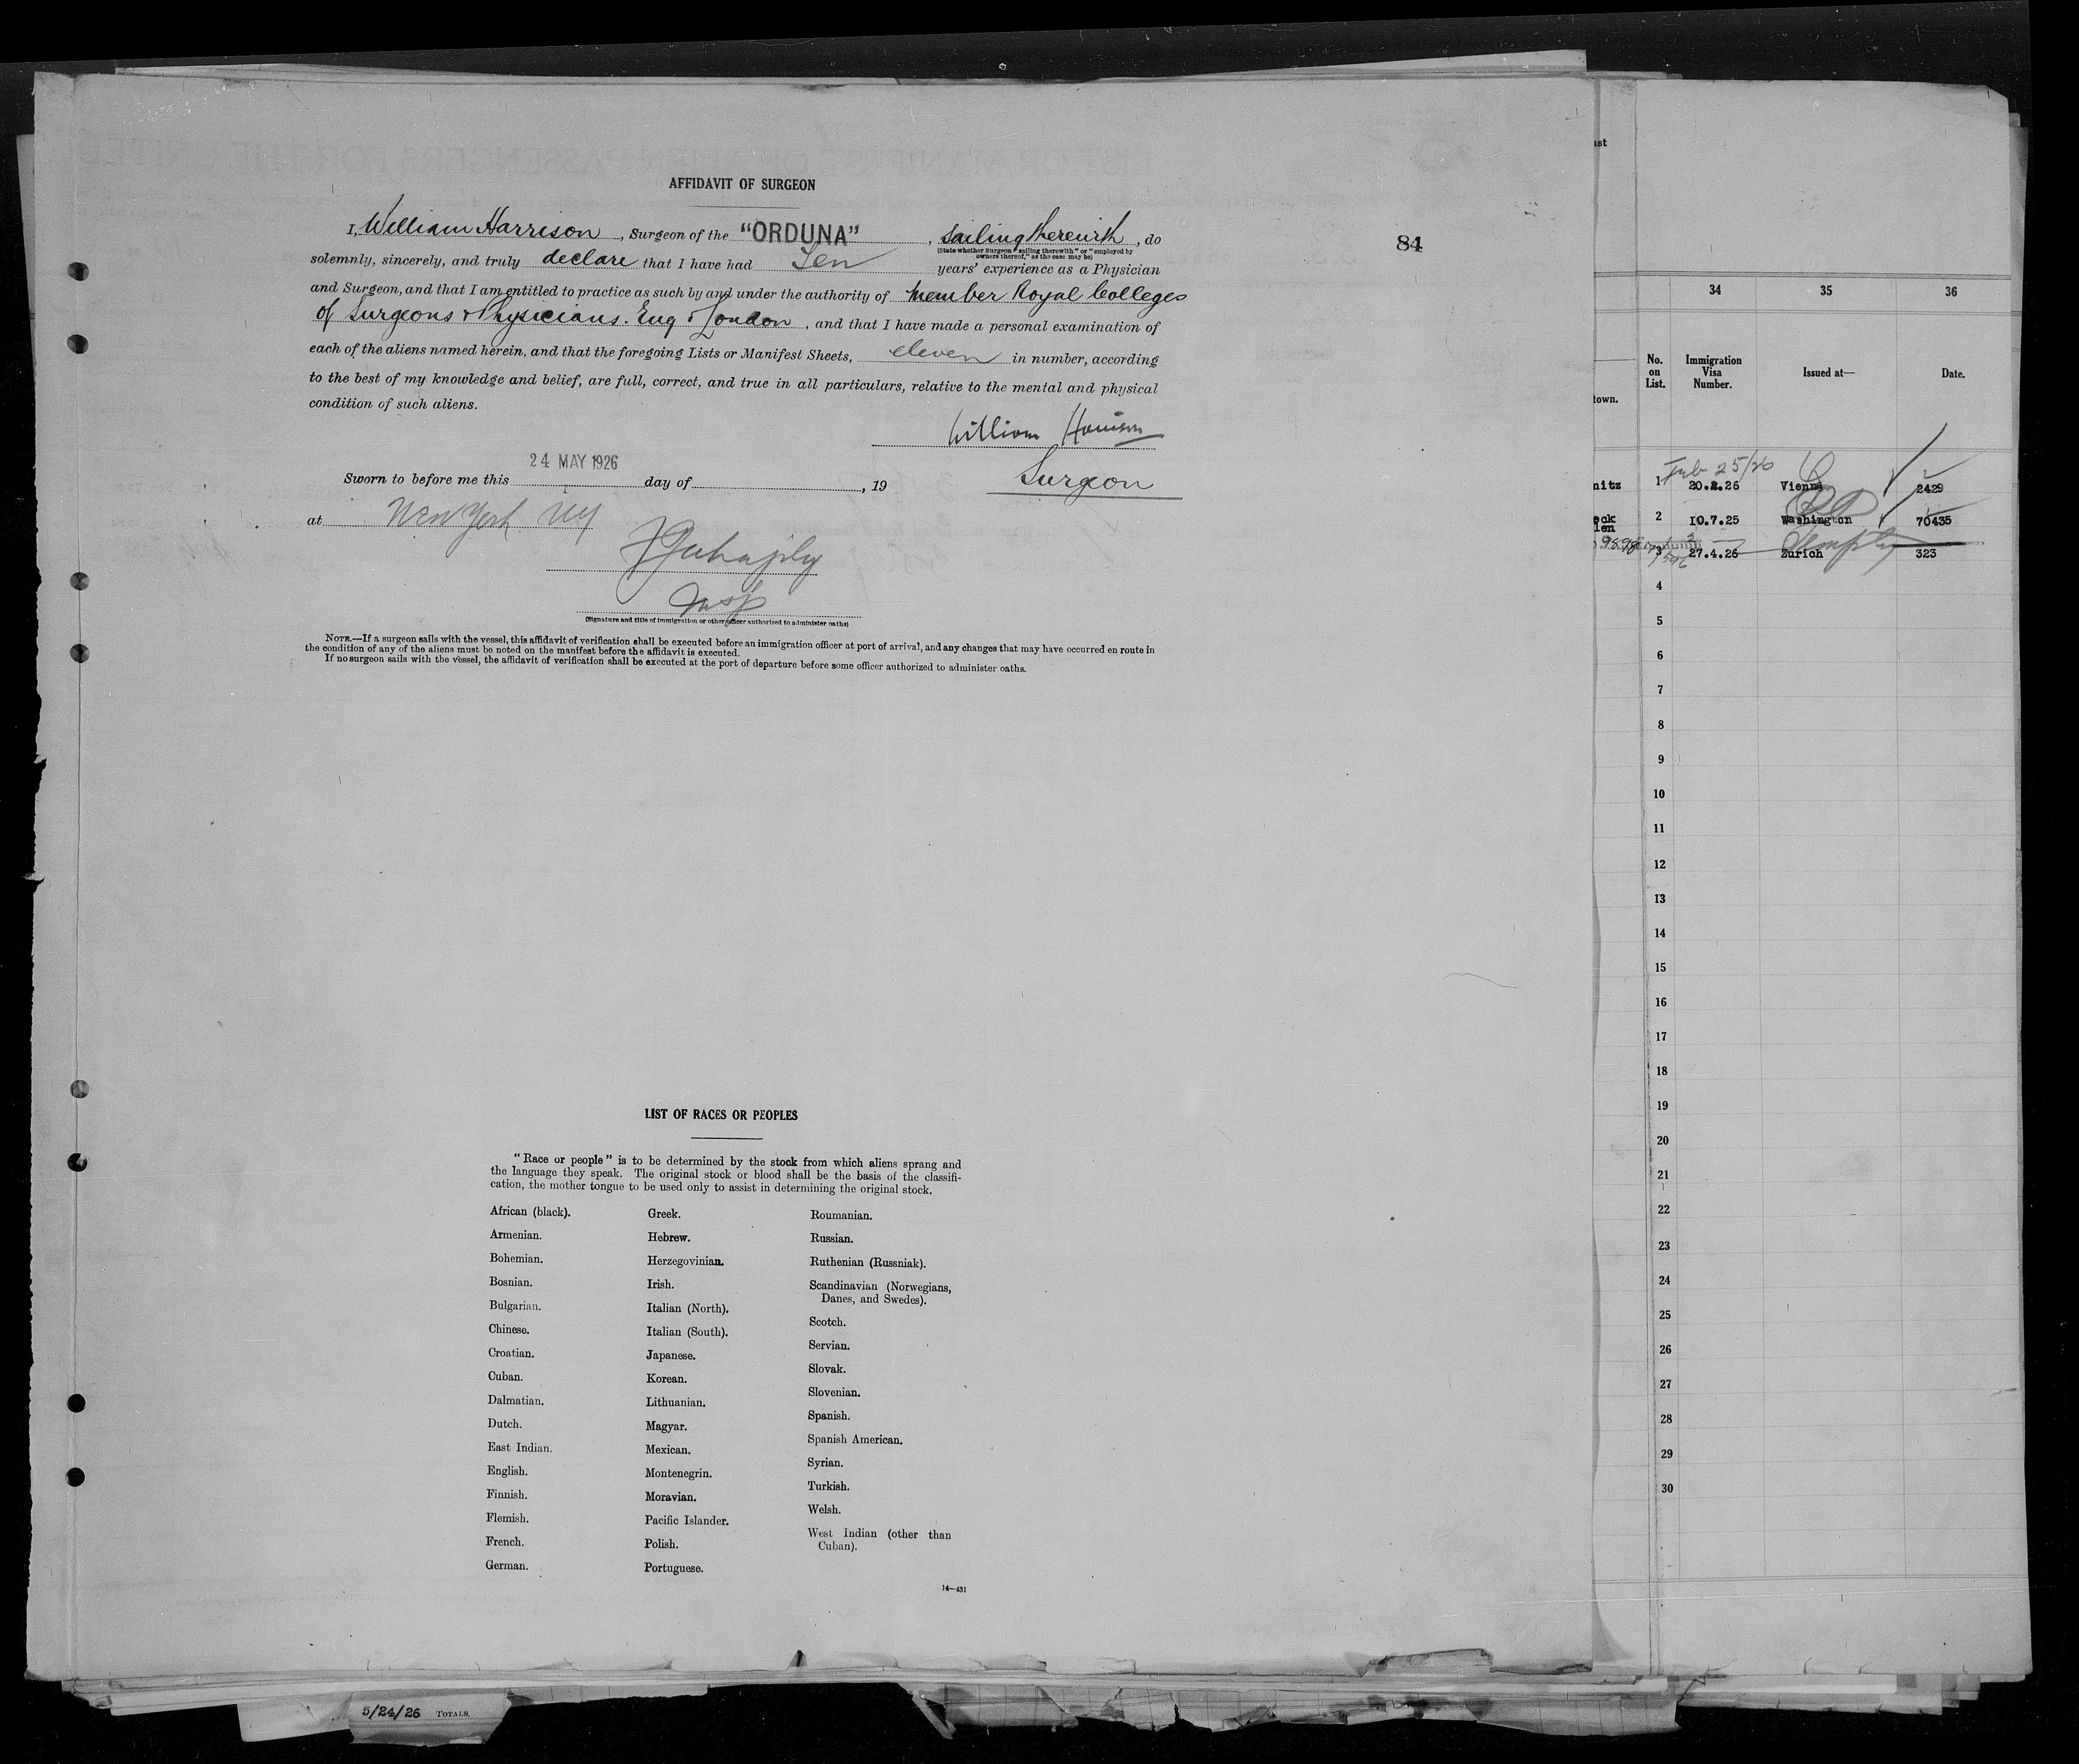 AFFIDAVIT OF SURGEON
I, William Harrison, Surgeon of the "ORDUNA", Sailing therewith, do
(State whether Surgeon "sailing therewith" or "employed by
owners thereof," as the case may be)
solemnly, sincerely, and truly declare that I have had Ten years' experience as a Physician
and Surgeon, and that I am entitled to practice as such by and under the authority of Member Royal Colleges
of Surgeons & Physicians. Eng & London, and that I have made a personal examination of
each of the aliens named herein, and that the foregoing Lists or Manifest Sheets, eleven in number, according
to the best of my knowledge and belief, are full, correct, and true in all particulars, relative to the mental and physical
condition of such aliens.
William Harrison
Surgeon
24 MAY 1926
Sworn to before me this day of , 19
at New York NY
Insp
(Signature and title of immigration or other officer authorized to administer oaths)
NOTE.—If a surgeon sails with the vessel, this affidavit of verification shall be executed before an immigration officer at port of arrival, and any changes that may have occurred en route in
the condition of any of the aliens must be noted on the manifest before the affidavit is executed.
If no surgeon sails with the vessel, the affidavit of verification shall be executed at the port of departure before some officer authorized to administer oaths.
LIST OF RACES OR PEOPLES
"Race or people" is to be determined by the stock from which aliens sprang and
the language they speak. The original stock or blood shall be the basis of the classifi-
cation, the mother tongue to be used only to assist in determining the original stock.
African (black).
Armenian.
Bohemian.
Bosnian.
Bulgarian.
Chinese.
Croatian.
Cuban.
Dalmatian.
Dutch.
East Indian.
English.
Finnish.
Flemish.
French.
German.
Greek.
Hebrew.
Herzegovinian.
Irish.
Italian (North).
Italian (South).
Japanese.
Korean.
Lithuanian.
Magyar.
Mexican.
Montenegrin.
Moravian.
Pacific Islander.
Polish.
Portuguese.
Roumanian.
Russian.
Ruthenian (Russniak).
Scandinavian (Norwegians,
Danes, and Swedes).
Scotch.
Servian.
Slovak.
Slovenian.
Spanish.
Spanish American.
Syrian.
Turkish.
Welsh.
West Indian (other than
Cuban).
14—431
84
34 35 36
No.
on
List.
Immigration
Visa
Number.
Issued at—
Date.
town.
nitz
1 20.2.26 Vienna 2429
ock
len
2 10.7.25 Washington 70435
3 27.4.26 Zurich 323
4
5
6
7
8
9
10
11
12
13
14
15
16
17
18
19
20
21
22
23
24
25
26
27
28
29
30
5/24/26 TOTALS.